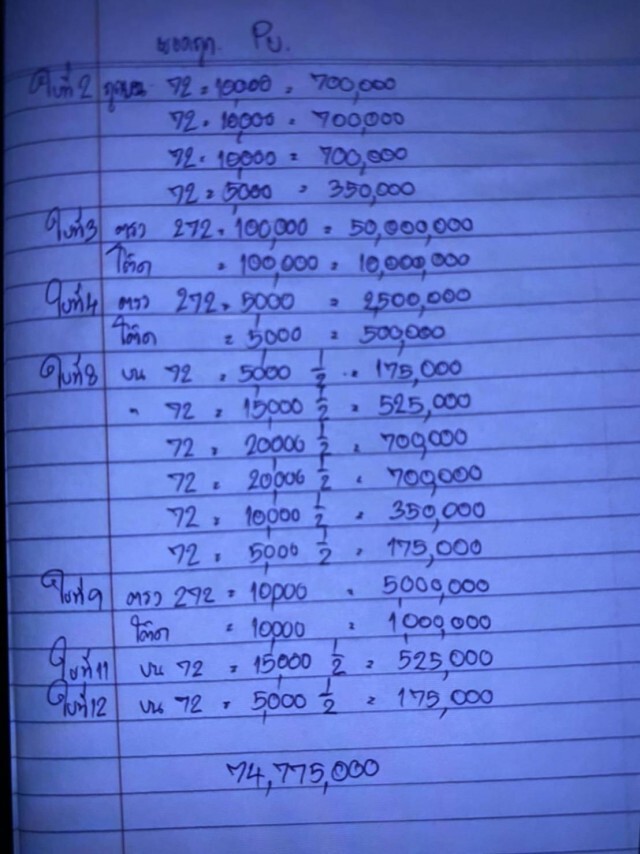 ยอดถูก. Pu.
ใบที่2 ถูกบน 72 = 10000 = 700,000
72 = 10,000 = 700,000
72 = 10000 = 700,000
72 = 5000 = 350,000
ใบที่3 ตรง 272 = 100,000 = 50,000,000
โต๊ด = 100,000 = 10,000,000
ใบที่4 ตรง 272 = 5000 = 2500,000
โต๊ด = 5000 = 500,000
ใบที่8 บน 72 = 5000 1/2 = 175,000
" 72 = 15000 1/2 = 525,000
72 = 20000 1/2 = 700,000
72 = 20000 1/2 = 700,000
72 = 10000 1/2 = 350,000
72 = 5000 1/2 = 175,000
ใบที่9 ตรง 272 = 10000 = 5000,000
โต๊ด = 10000 = 1000,000
ใบที่11 บน 72 = 15000 1/2 = 525,000
ใบที่12 บน 72 = 5000 1/2 = 175,000
74,775,000